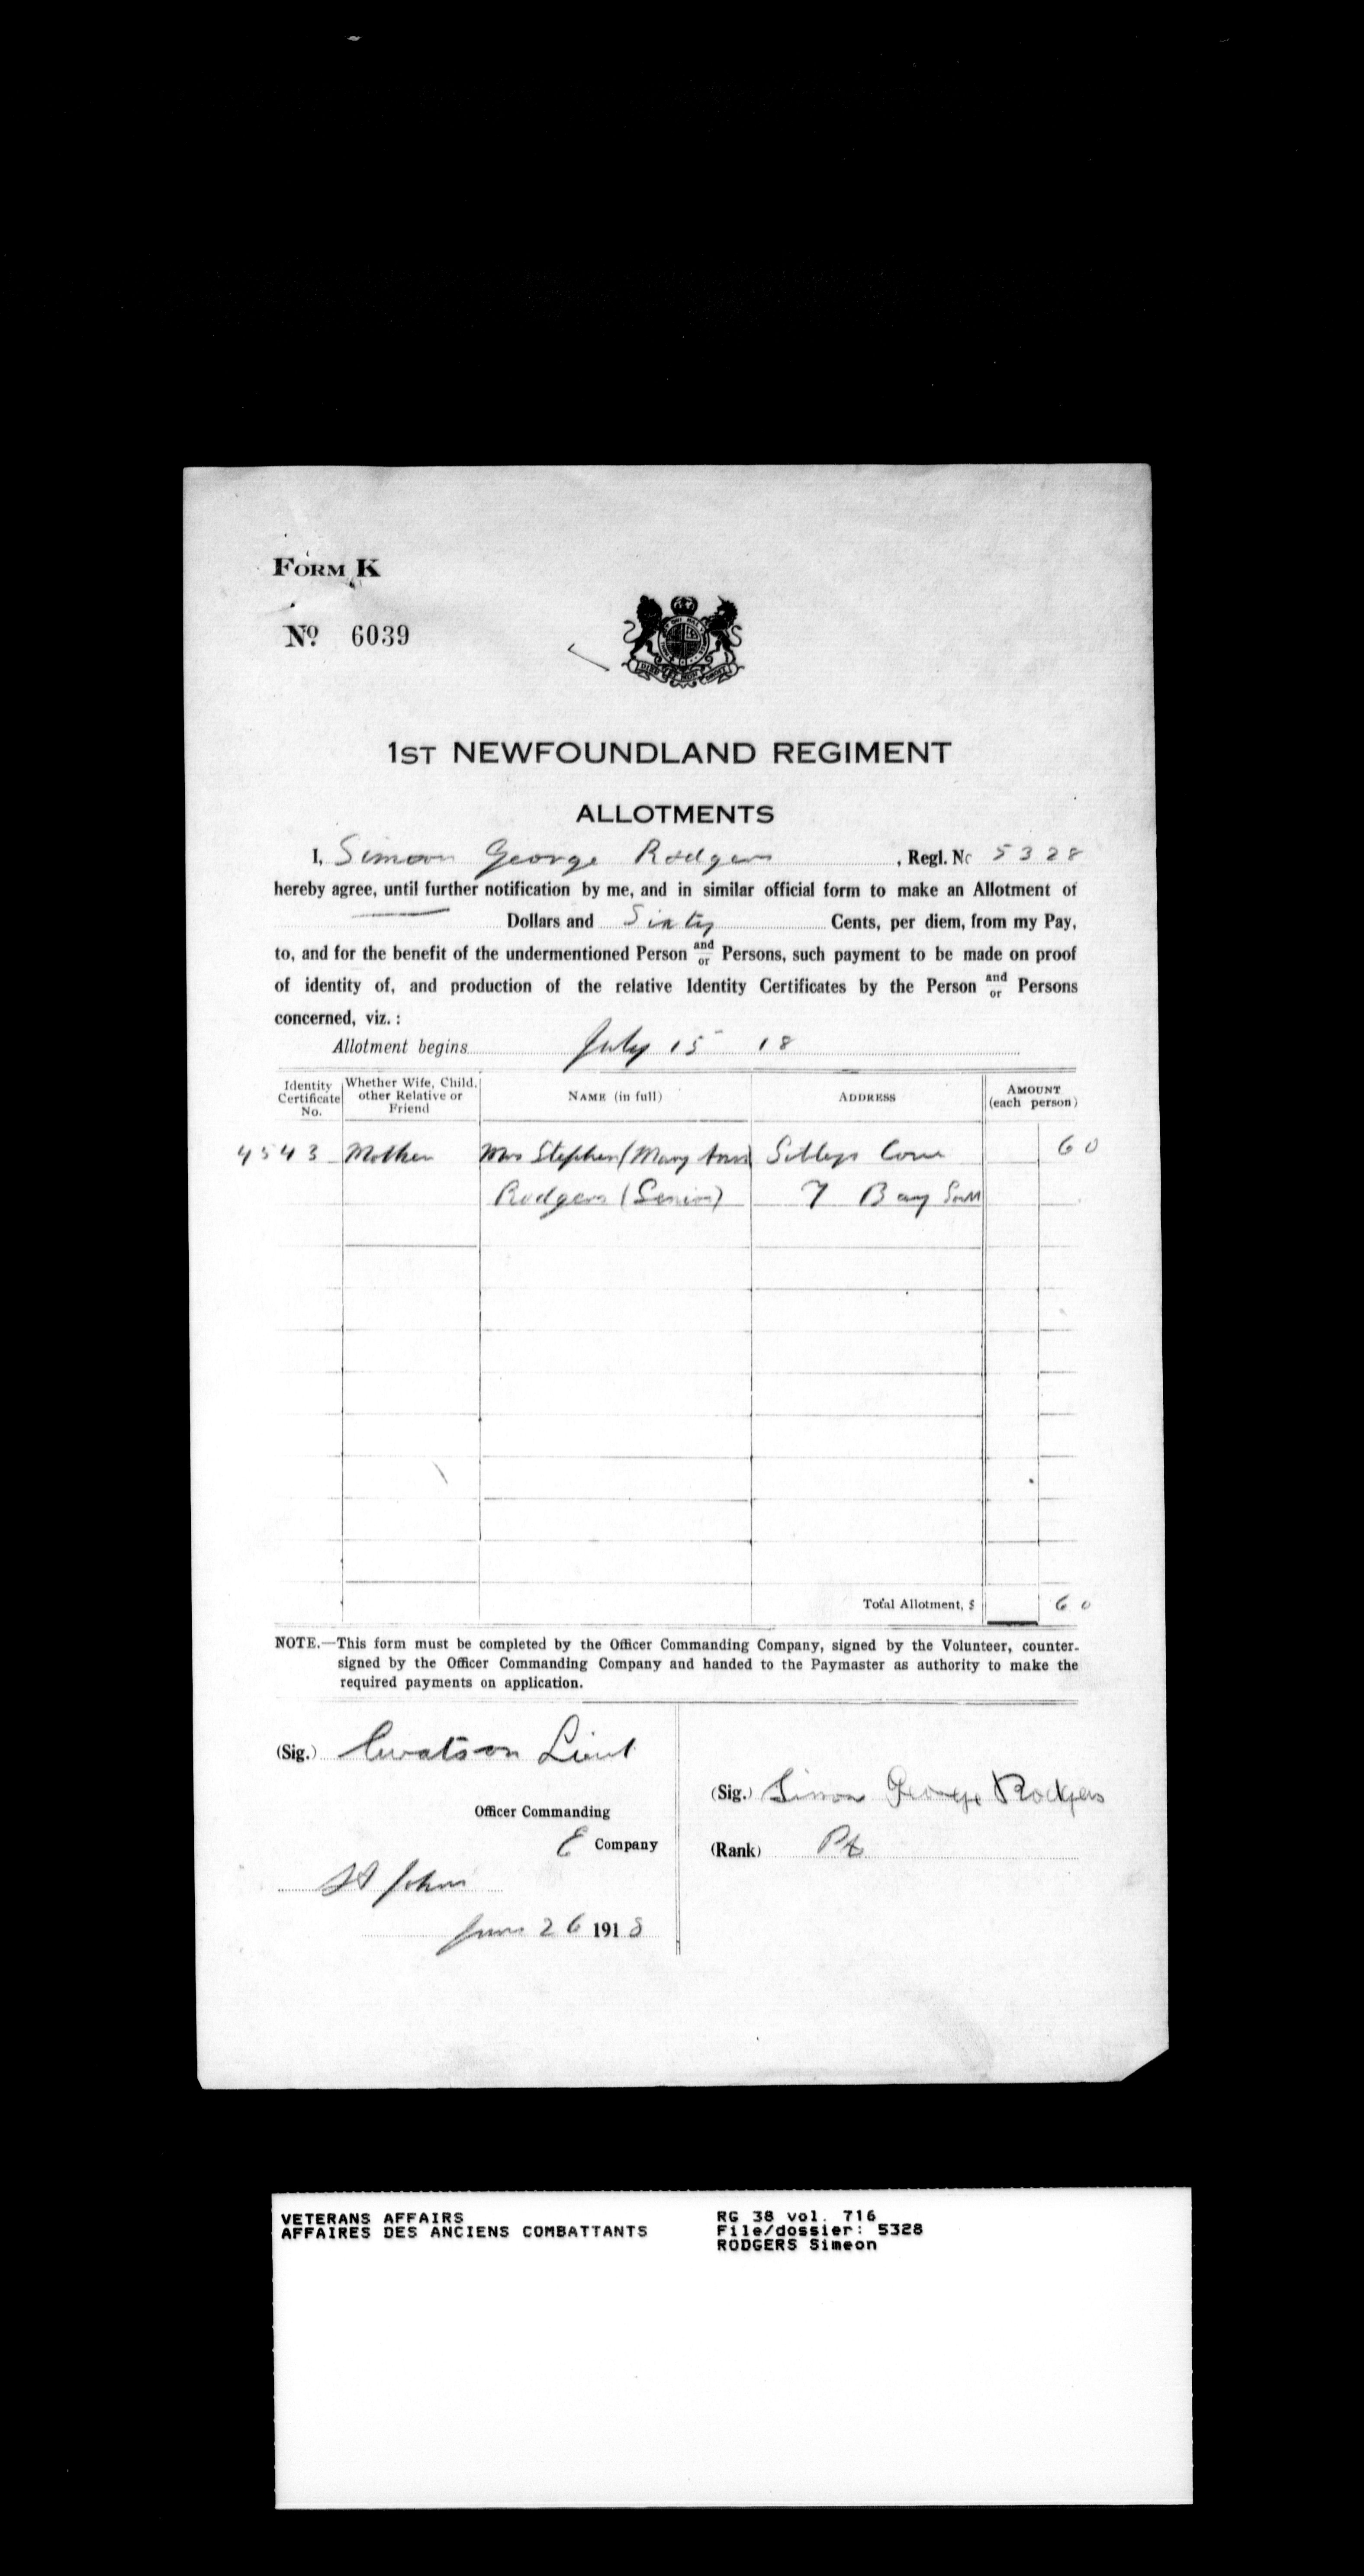 FORM K
No 6039
1ST NEWFOUNDLAND REGIMENT
ALLOTMENTS
I, Simeon George Rodgers, Regl. No 5328
hereby agree, until further notification by me, and in similar official form to make an Allotment of
— Dollars and Sixty Cents, per diem, from my Pay,
to, and for the benefit of the undermentioned Person and/or Persons, such payment to be made on proof
of identity of, and production of the relative Identity Certificates by the Person and/or Persons
concerned, viz.:
Allotment begins July 15 18
Identity Certificate No. Whether Wife, Child, other Relative or Friend NAME (in full) ADDRESS AMOUNT (each person)
4543 Mother Mrs Stephen (Mary Ann) Sibleys Cove 60
Rodgers (Senior) T Bay South
Total Allotment, $ 60
NOTE.—This form must be completed by the Officer Commanding Company, signed by the Volunteer, counter-
signed by the Officer Commanding Company and handed to the Paymaster as authority to make the
required payments on application.
(Sig.) Watson Lieut
(Sig.) Simon George Rodgers
Officer Commanding
E Company
(Rank) Pt
St Johns
June 26 1918
VETERANS AFFAIRS
AFFAIRES DES ANCIENS COMBATTANTS
RG 38 vol. 716
File/dossier: 5328
RODGERS Simeon